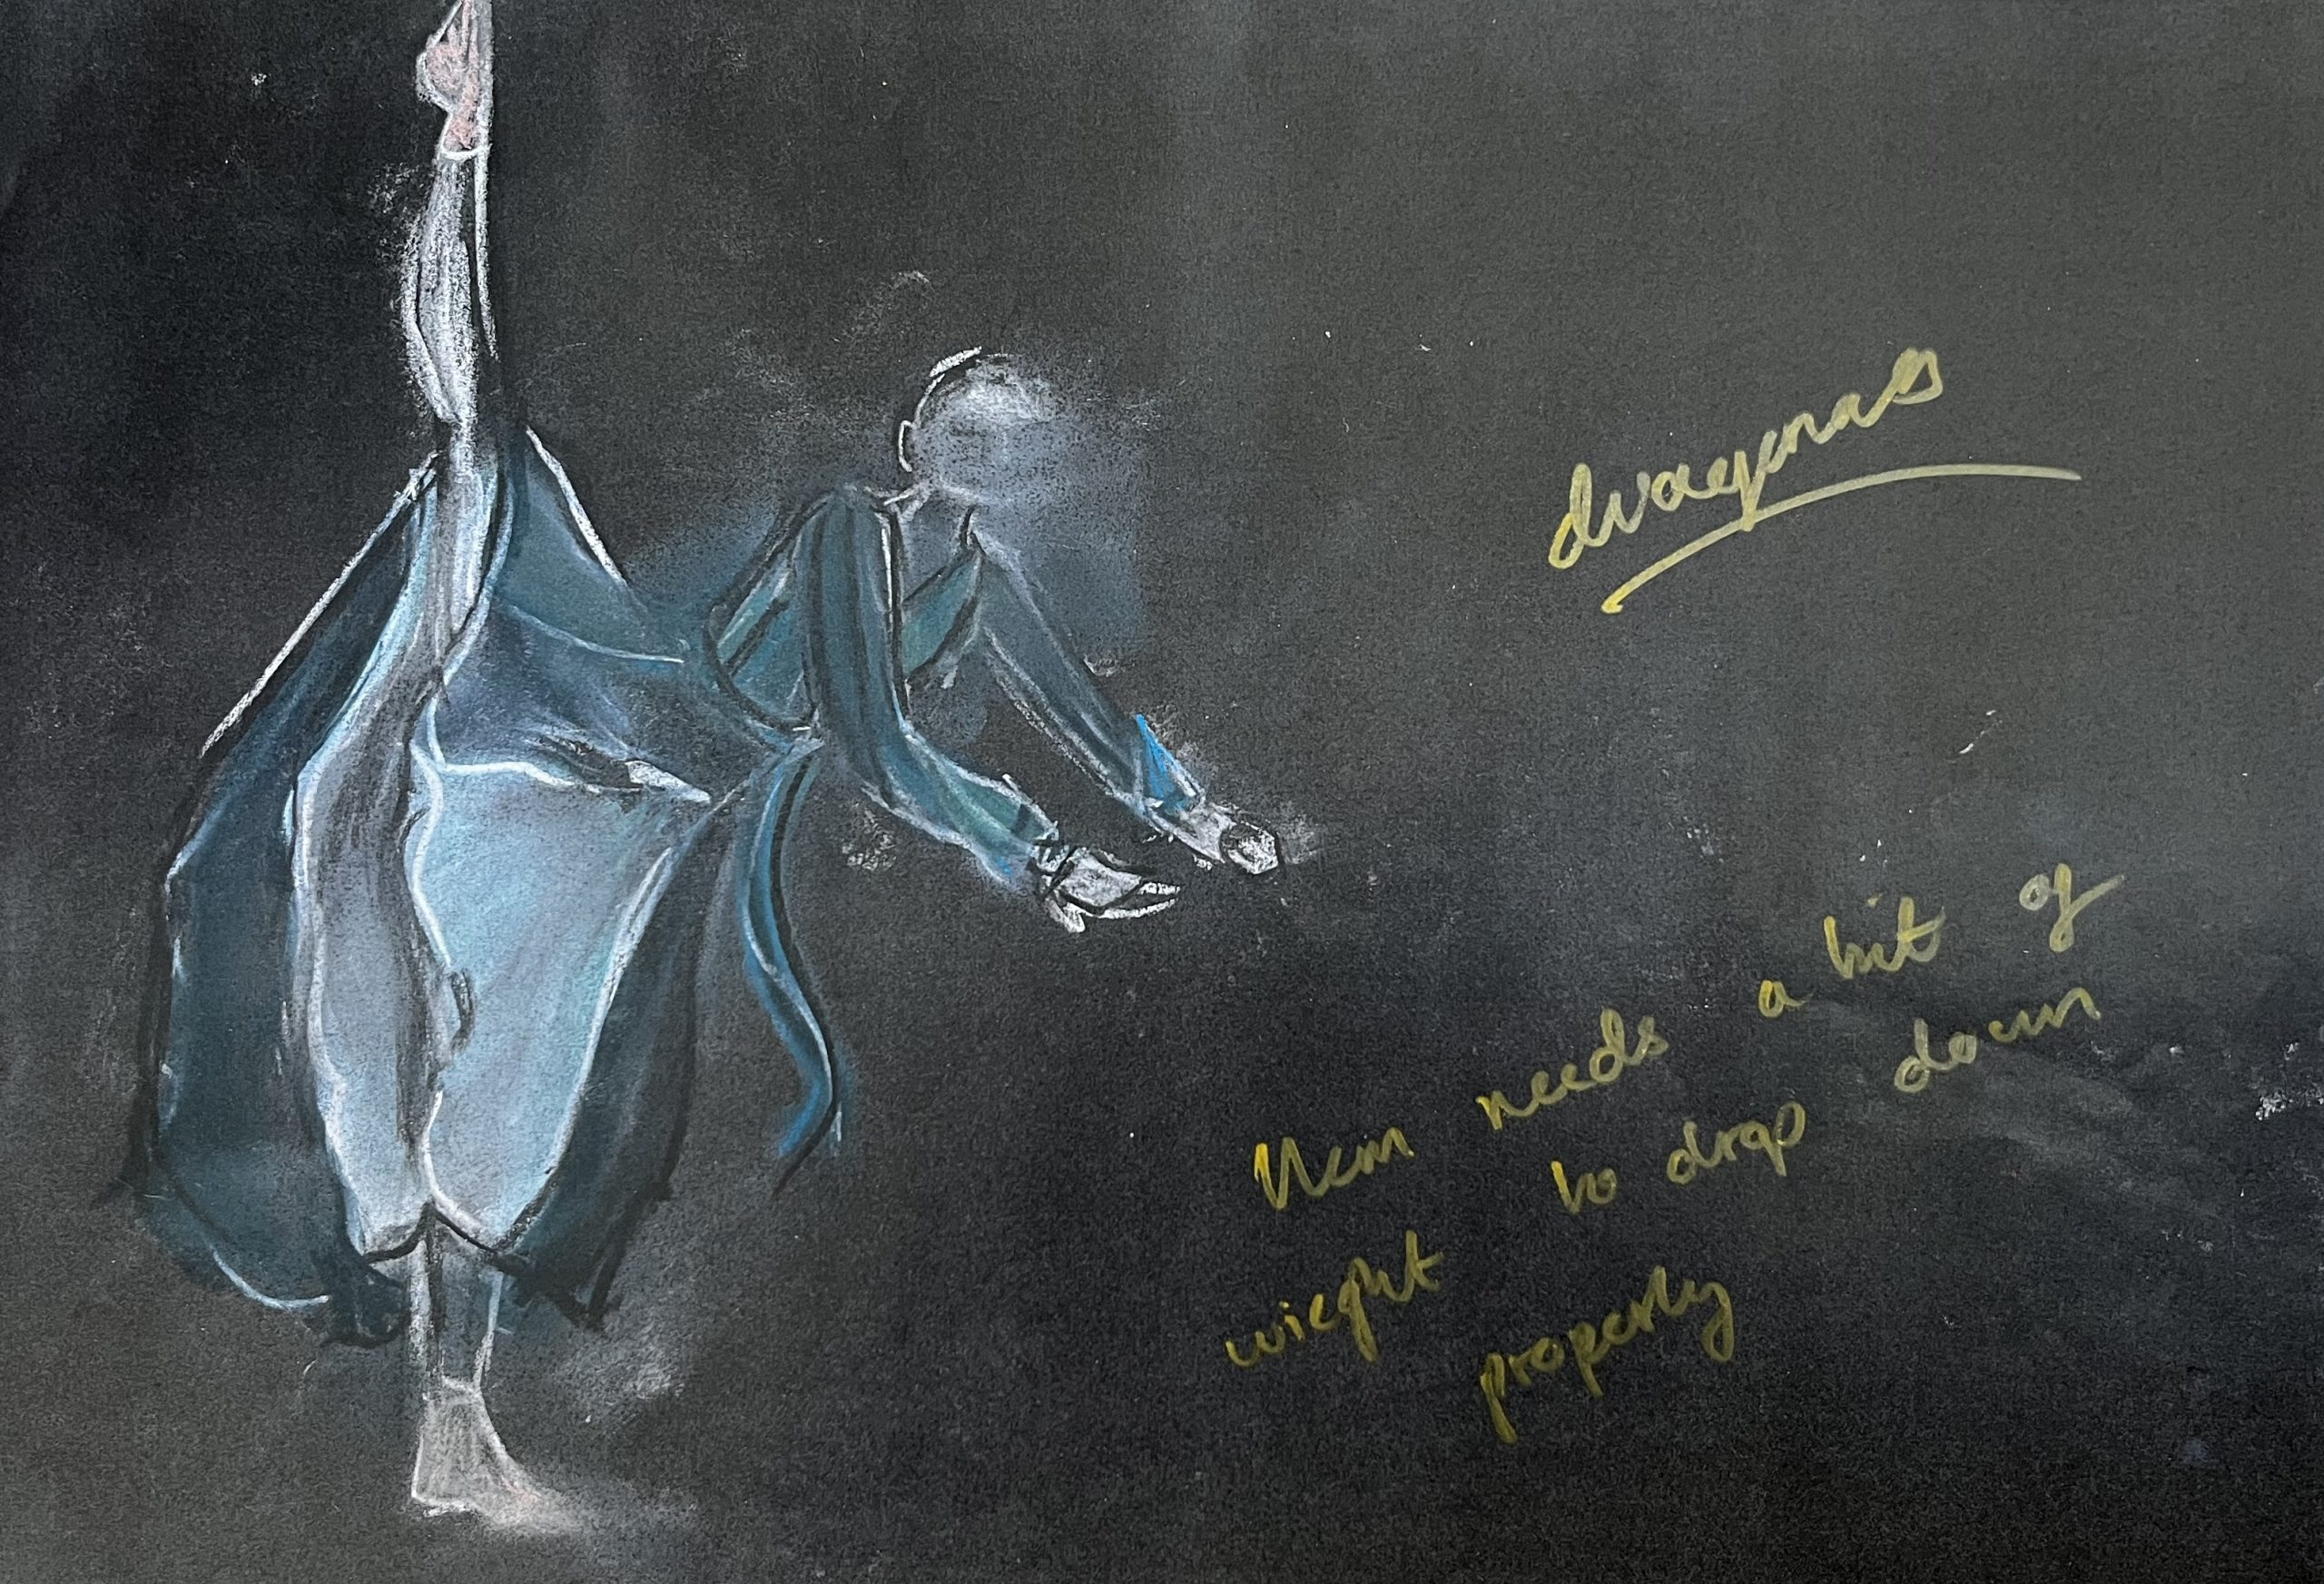 Hem needs a bit of
wieght to drop down
properly